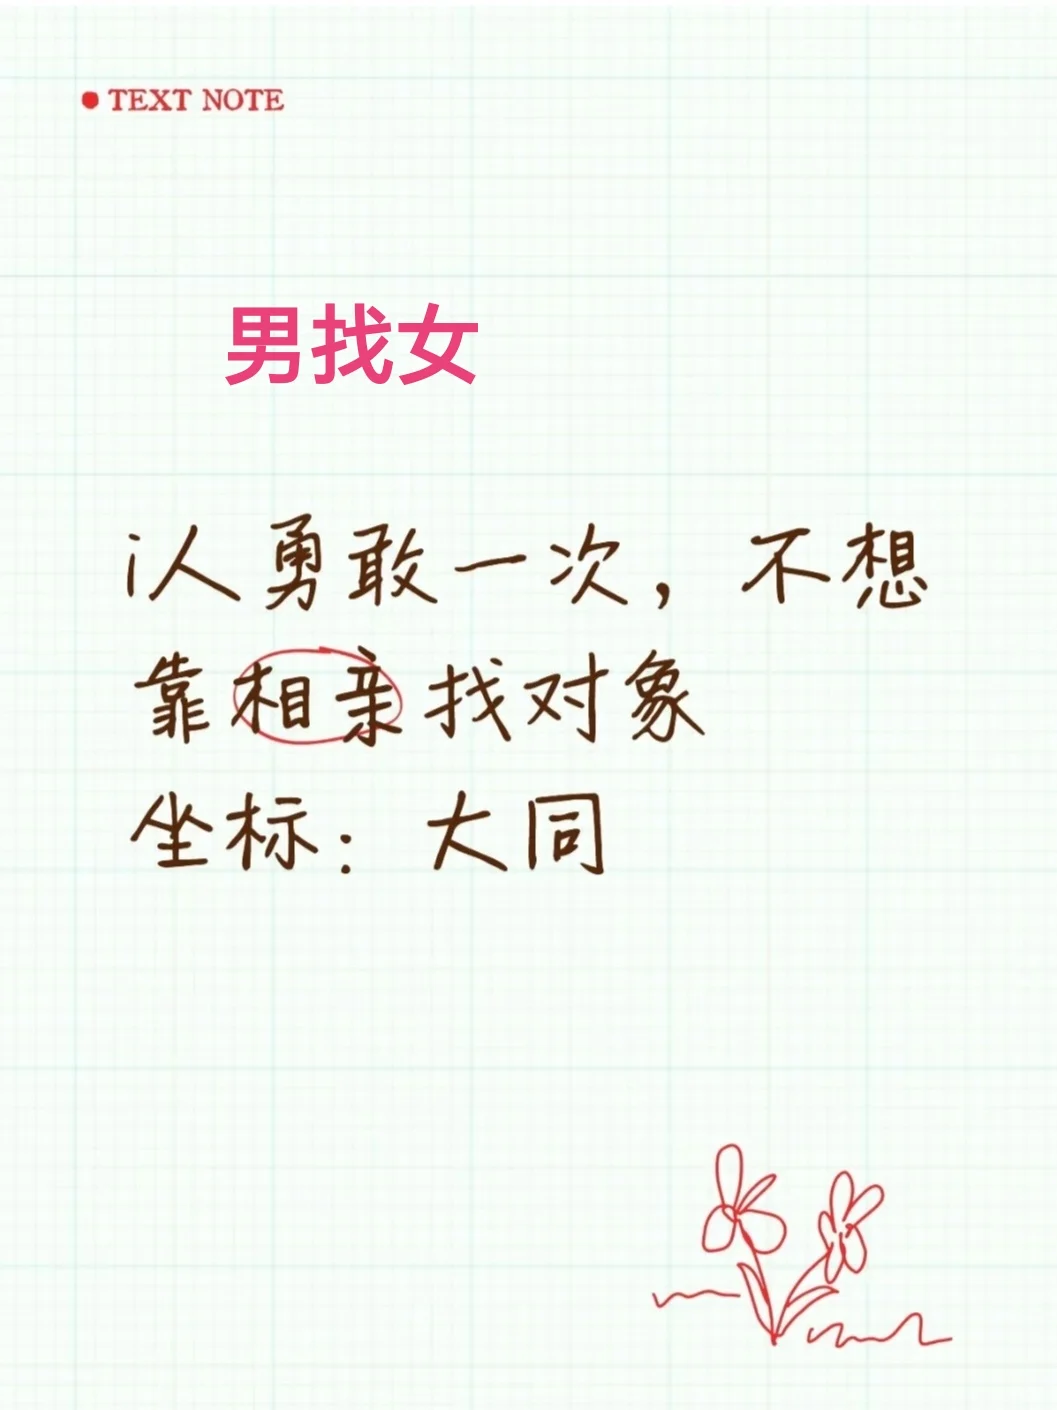 TEXT NOTE
男找女
i人勇敢一次，不想
靠相亲找对象
坐标：大同